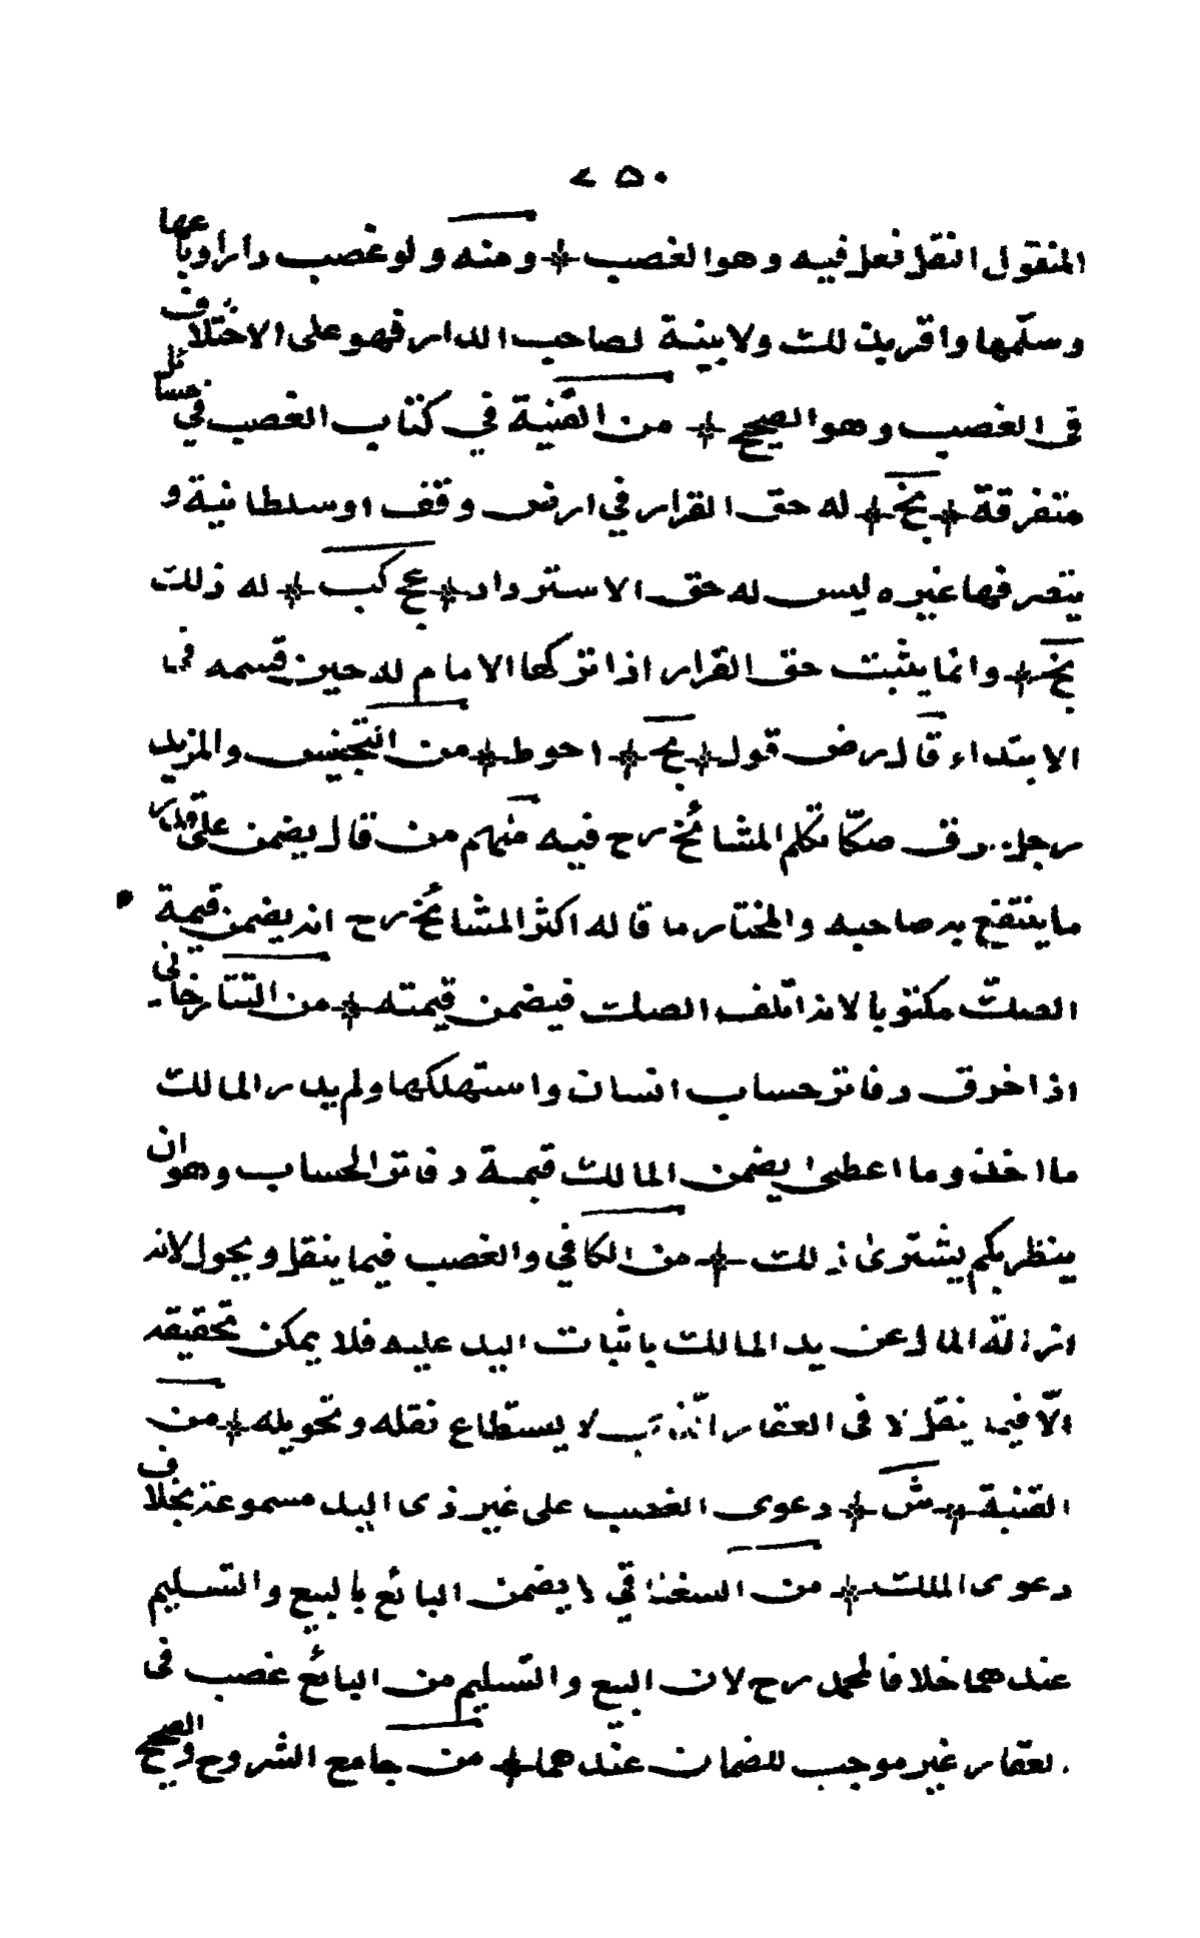 ٢٥٠
المنقول النقل فعل فيه وهو الغصب + ومنه ولو غصب دارا وباعها
وسلّمها واقر بذلك ولا بينة لصاحب الدار فهو على الاختلاف
فى الغصب وهو الصحيح + من القنية في كتاب الغصب في مسائل
متفرقة + بخ + له حق القرار في ارض وقف او سلطانية و
يتصرفها غيره ليس له حق الاسترداد + عج كب + له ذلك
بخ + وانما يثبت حق القرار اذا تركها الامام له حين قسمه فى
الابتداء قال رض قول + بخ + احوط + من التجنيس والمزيد
رجل خرق صكّا تكلم المشائخ رح فيه منهم من قال يضمن على قدر
ما ينتفع به صاحبه والمختار ما قاله اكثر المشائخ رح انه يضمن قيمة
الصكّ مكتوبا لانه اتلف الصك فيضمن قيمته + من التتارخانى
اذا خرق دفاتر حساب انسان واستهلكها ولم يدر المالك
ما اخذ وما اعطى يضمن المالك قيمة دفاتر الحساب وهو ان
ينظر بكم يشترى ذلك + من الكافي والغصب فيما ينقل ويحول لانه
ازالة المال عن يد المالك باثبات اليد عليه فلا يمكن تحقيقه
الّا فيما ينقل لا فى العقار لا يستطاع نقله وتحويله + من
القنية + ش + دعوى الغصب على غير ذى اليد مسموعة بخلاف
دعوى الملك + من السغناقي لا يضمن البائع بالبيع والتسليم
عندهما خلافا لمحمد رح لان البيع والتسليم من البائع غصب فى
العقار غير موجب للضمان عندهما + من جامع الشروح والصحيح